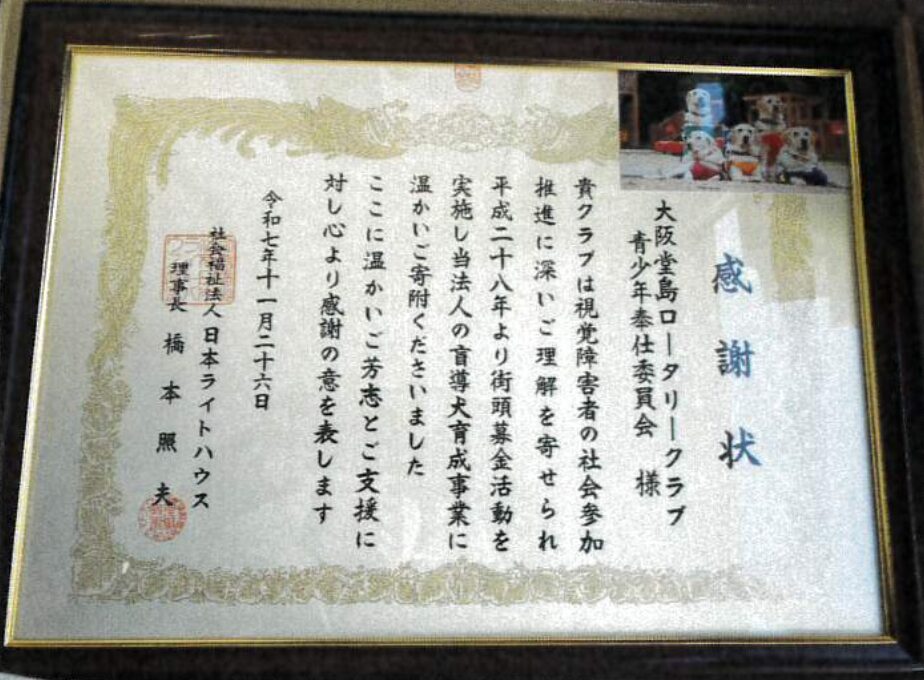 感謝状
大阪堂島ロータリークラブ
青少年奉仕委員会 様
貴クラブは視覚障害者の社会参加
推進に深いご理解を寄せられ
平成二十八年より街頭募金活動を
実施し当法人の盲導犬育成事業に
温かいご寄附くださいました
ここに温かいご芳志とご支援に
対し心より感謝の意を表します
令和七年十一月二十六日
社会福祉法人 日本ライトハウス
理事長 橋本照夫